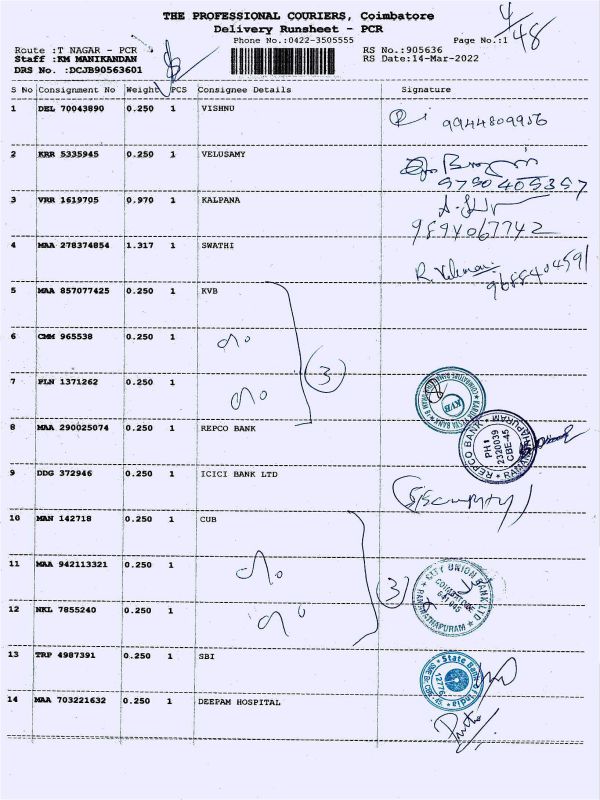 THE PROFESSIONAL COURIERS, Coimbatore
4/48
Delivery Runsheet - PCR
Phone No.:0422-3505555
Page No.:1
Route :T NAGAR - PCR
RS No.:905636
Staff :KM MANIKANDAN
RS Date:14-Mar-2022
DRS No. :DCJB90563601
S No Consignment No Weight PCS Consignee Details Signature
1 DEL 70043890 0.250 1 VISHNU
9944809956
2 KRR 5335945 0.250 1 VELUSAMY
9790405357
3 VRR 1619705 0.970 1 KALPANA
9894067742
4 MAA 278374854 1.317 1 SWATHI
9688404591
5 MAA 857077425 0.250 1 KVB
6 CMM 965538 0.250 1
(3)
7 PLN 1371262 0.250 1
KVB
8 MAA 290025074 0.250 1 REPCO BANK
REPCO BANK * RAMANATHAPURAM *
PH: 2320039
CBE-45
9 DDG 372946 0.250 1 ICICI BANK LTD
10 MAN 142718 0.250 1 CUB
11 MAA 942113321 0.250 1
(3)
CITY UNION BANK LTD * RAMANATHAPURAM *
COIMBATORE
641 045
12 NKL 7855240 0.250 1
13 TRP 4987391 0.250 1 SBI
State Bank of India
12776
14 MAA 703221632 0.250 1 DEEPAM HOSPITAL